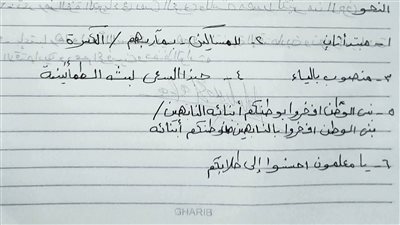 النحو
١- مبتدأ ثان ٢- للمساكين مآربهم / الكثيرة
٣- منصوب بالياء ٤- حبذا السعى لبث الطمأنينة
٥- بنى الوطن افخروا بوطنكم أبنائه النابهين /
بنى الوطن افخروا بالنابهين وطنكم أبنائه
٦- يا معلمون احسنوا إلى طلابكم
GHARIB